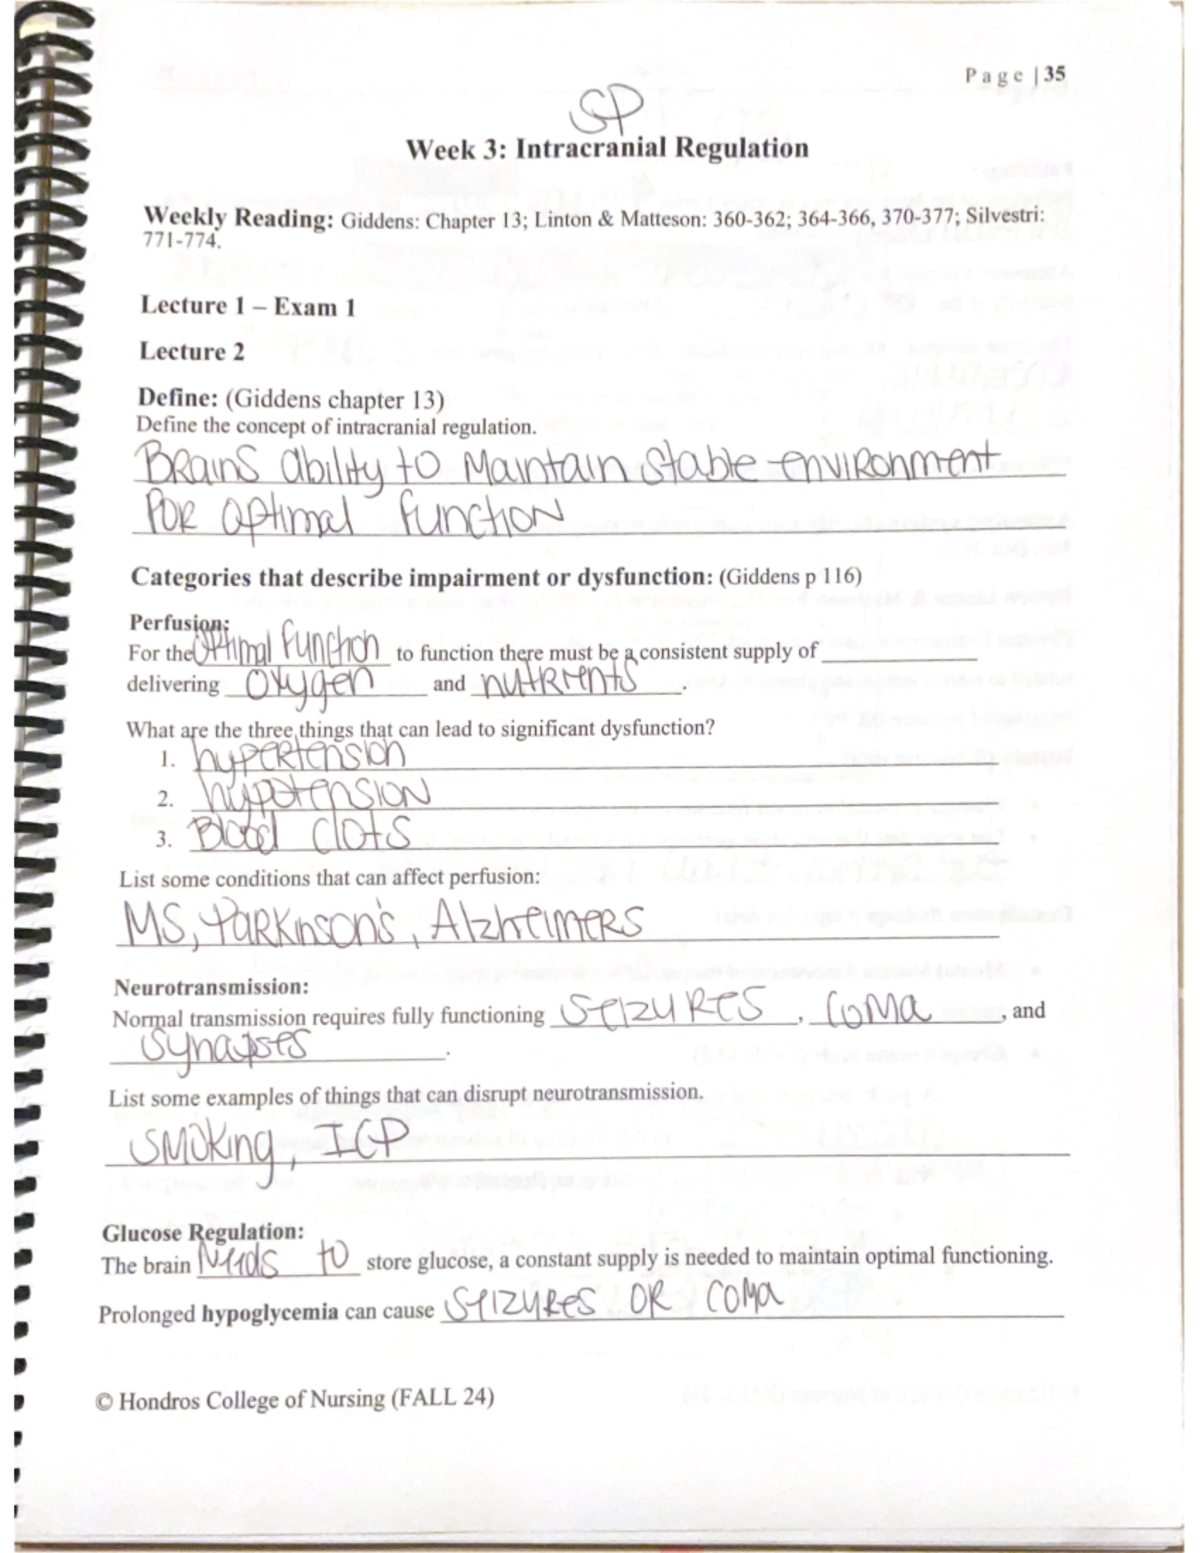 Page | 35
SP
Week 3: Intracranial Regulation
Weekly Reading: Giddens: Chapter 13; Linton & Matteson: 360-362; 364-366, 370-377; Silvestri:
771-774.
Lecture 1 – Exam 1
Lecture 2
Define: (Giddens chapter 13)
Define the concept of intracranial regulation.
Brains ability to maintain stable environment
for optimal function
Categories that describe impairment or dysfunction: (Giddens p 116)
Perfusion:
For the optimal function to function there must be a consistent supply of ____________
delivering oxygen and nutrients.
What are the three things that can lead to significant dysfunction?
1. hypertension
2. hypotension
3. Blood clots
List some conditions that can affect perfusion:
MS, Parkinson's, Alzheimers
Neurotransmission:
Normal transmission requires fully functioning seizures, coma, and
synapses.
List some examples of things that can disrupt neurotransmission.
smoking, ICP
Glucose Regulation:
The brain needs to store glucose, a constant supply is needed to maintain optimal functioning.
Prolonged hypoglycemia can cause seizures or coma
© Hondros College of Nursing (FALL 24)